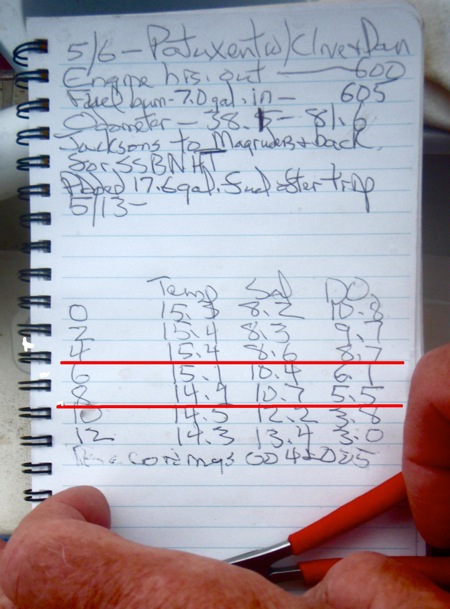 5/6 - Patuxent w/ Clive+Dan
Engine hrs. out — 600
Fuel burn - 7.0 gal. in — 605
Odometer - 38.5 - 81.6
Jacksons to Magruders + back
for SSBNHT
Added 17.6 gal. fuel after trip
5/13-
Temp Sal DO
0 15.3 8.2 10.8
2 15.4 8.3 9.7
4 15.4 8.6 8.7
6 15.1 10.4 6.1
8 14.9 10.7 5.5
10 14.5 12.2 3.8
12 14.3 13.4 3.0
corings 004-005